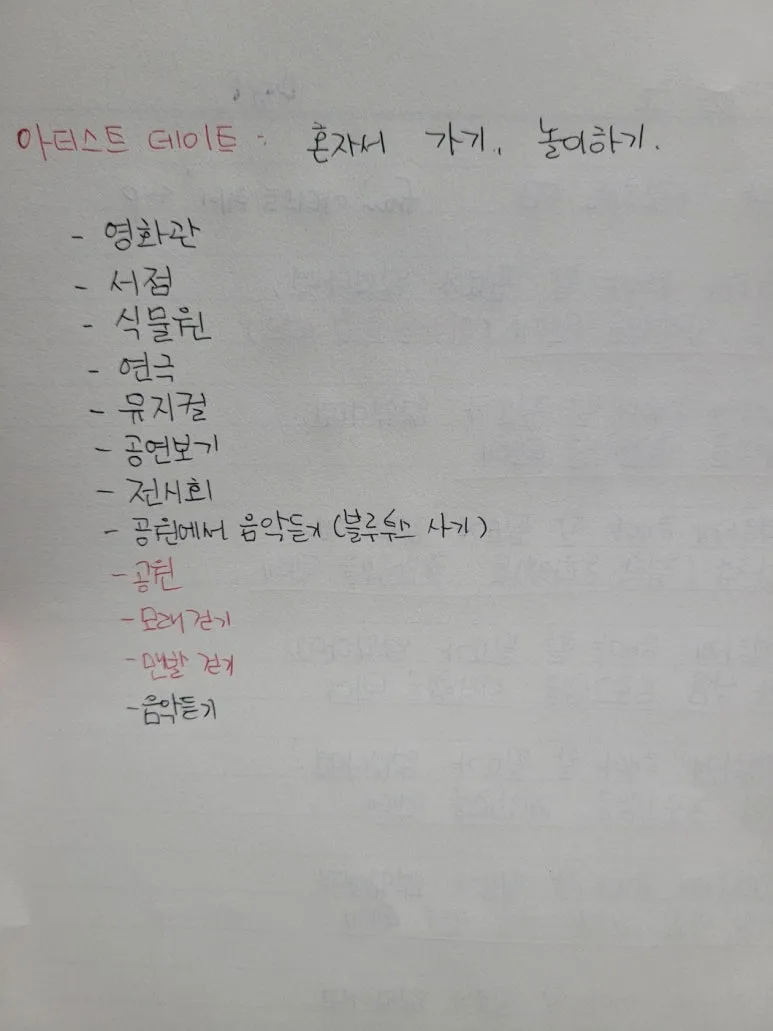 아티스트 데이트 : 혼자서 가기, 놀이하기.
- 영화관
- 서점
- 식물원
- 연극
- 뮤지컬
- 공연보기
- 전시회
- 공원에서 음악듣기 (블루투스 사기)
- 공원
- 모래 걷기
- 맨발 걷기
- 음악듣기